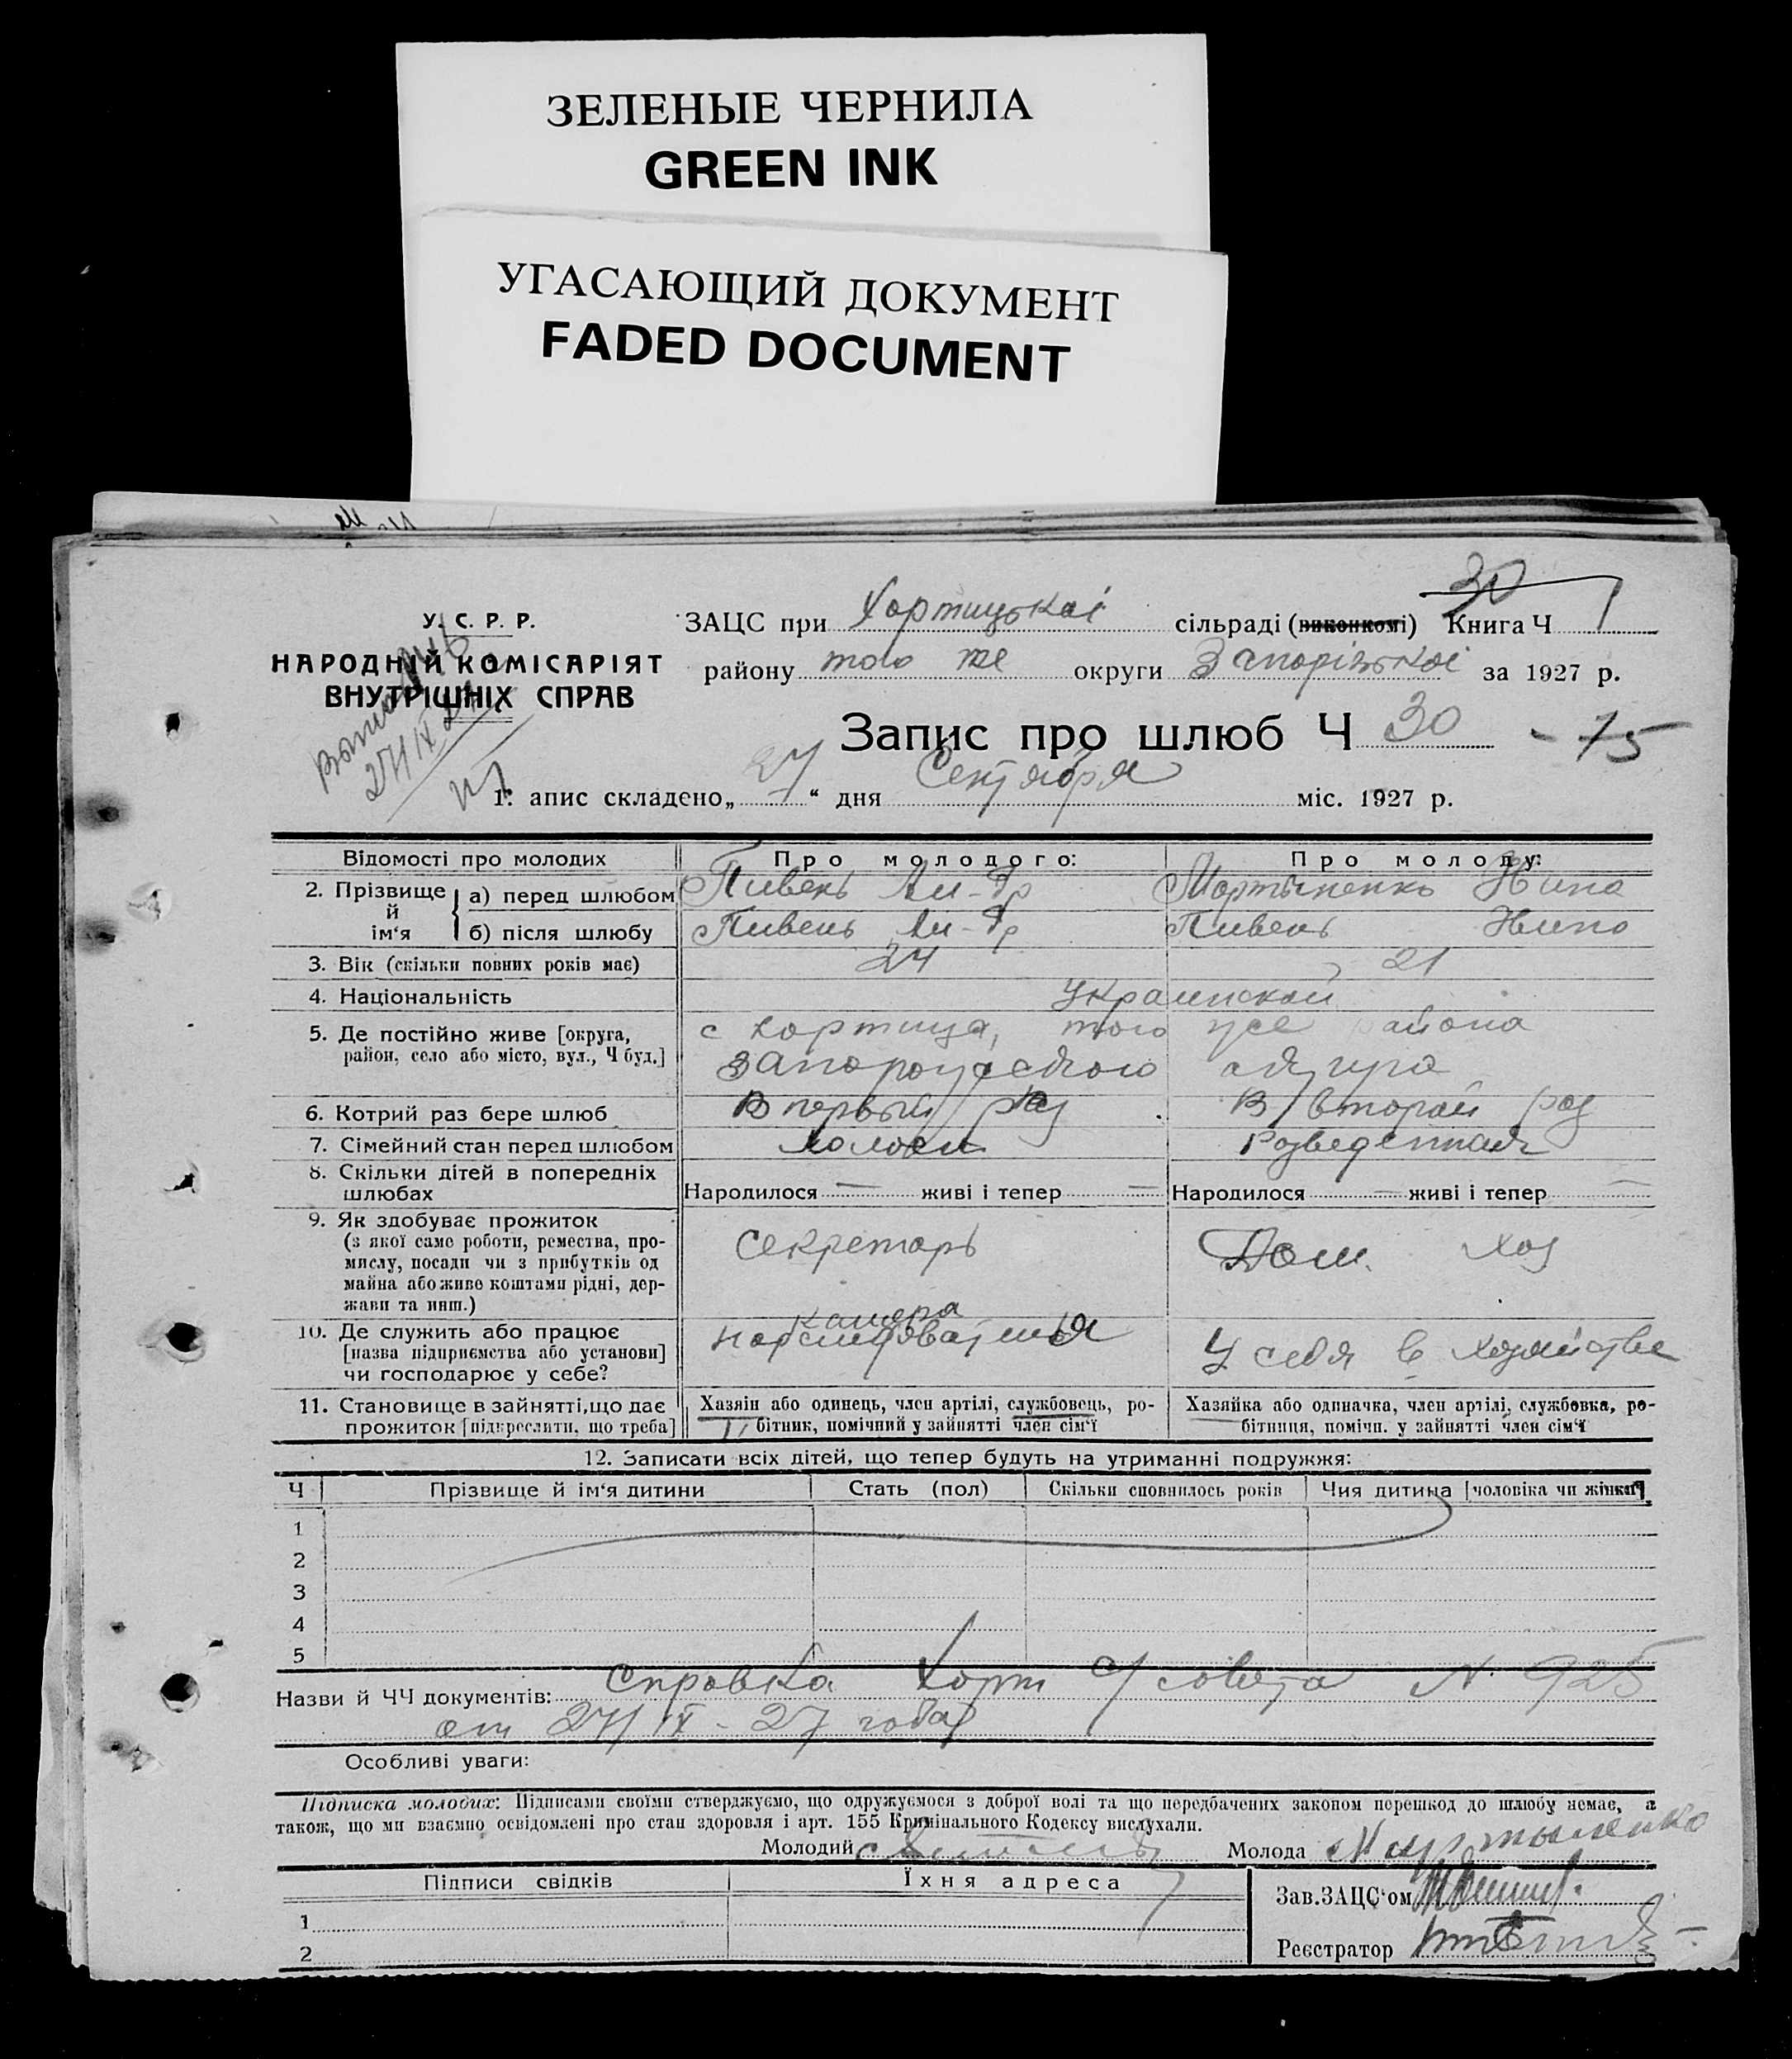 ЗЕЛЕНЫЕ ЧЕРНИЛА
GREEN INK
УГАСАЮЩИЙ ДОКУМЕНТ
FADED DOCUMENT
У. С. Р. Р.
НАРОДНІЙ КОМІСАРІЯТ
ВНУТРІШНІХ СПРАВ
ЗАЦС при Хортицької сільраді (виконкомі) Книга Ч 30 1
району того же округи Запорізької за 1927 р.
Запис про шлюб Ч 30 - 15
1. апис складено „ 27 “ дня Сентября міс. 1927 р.
Відомості про молодих Про молодого: Про молоду:
2. Прізвище й ім‘я
а) перед шлюбом Пивень Ал-др Мартыненко Нина
б) після шлюбу Пивень Ал-др Пивень Нина
3. Вік (скільки повних років має) 24 21
4. Національність Украинской
5. Де постійно живе [округа, с Хортица, того же района
район, село або місто, вул., Ч буд.] Запорожского округа
6. Котрий раз бере шлюб В первый раз В второй раз
7. Сімейний стан перед шлюбом Холост Разведенная
8. Скільки дітей в попередніх
шлюбах Народилося — живі і тепер — Народилося — живі і тепер —
9. Як здобуває прожиток
(з якої саме роботи, ремества, про-
мислу, посади чи з прибутків од
майна або живе коштами рідні, дер-
жави та инш.)
Секретарь Дом. хоз
10. Де служить або працює
[назва підприємства або установи]
чи господарює у себе?
камера
нарследователя У себя в хозяйстве
11. Становище в зайнятті, що дає
прожиток [підкреслити, що треба]
Хазяїн або одинець, член артілі, службовець, ро-
бітник, помічний у зайнятті член сім‘ї
Хазяйка або одиначка, член артілі, службовка, ро-
бітниця, помічн. у зайнятті член сім‘ї
12. Записати всіх дітей, що тепер будуть на утриманні подружжя:
Ч Прізвище й ім‘я дитини Стать (пол) Скільки сповнилось років Чия дитина [чоловіка чи жінки]
1
2
3
4
5
Назви й ЧЧ документів: Справка Хорт с/совета N. 925
от 27/IX - 27 года
Особливі уваги:
Підписка молодих: Підписами своїми стверджуємо, що одружуємося з доброї волі та що передбачених законом перешкод до шлюбу немає, а
також, що ми взаємно освідомлені про стан здоровля і арт. 155 Кримінального Кодексу вислухали.
Молодий Молода Мартыненко
Підписи свідків Їхня адреса
1
2
Зав. ЗАЦС‘ом
Реєстратор